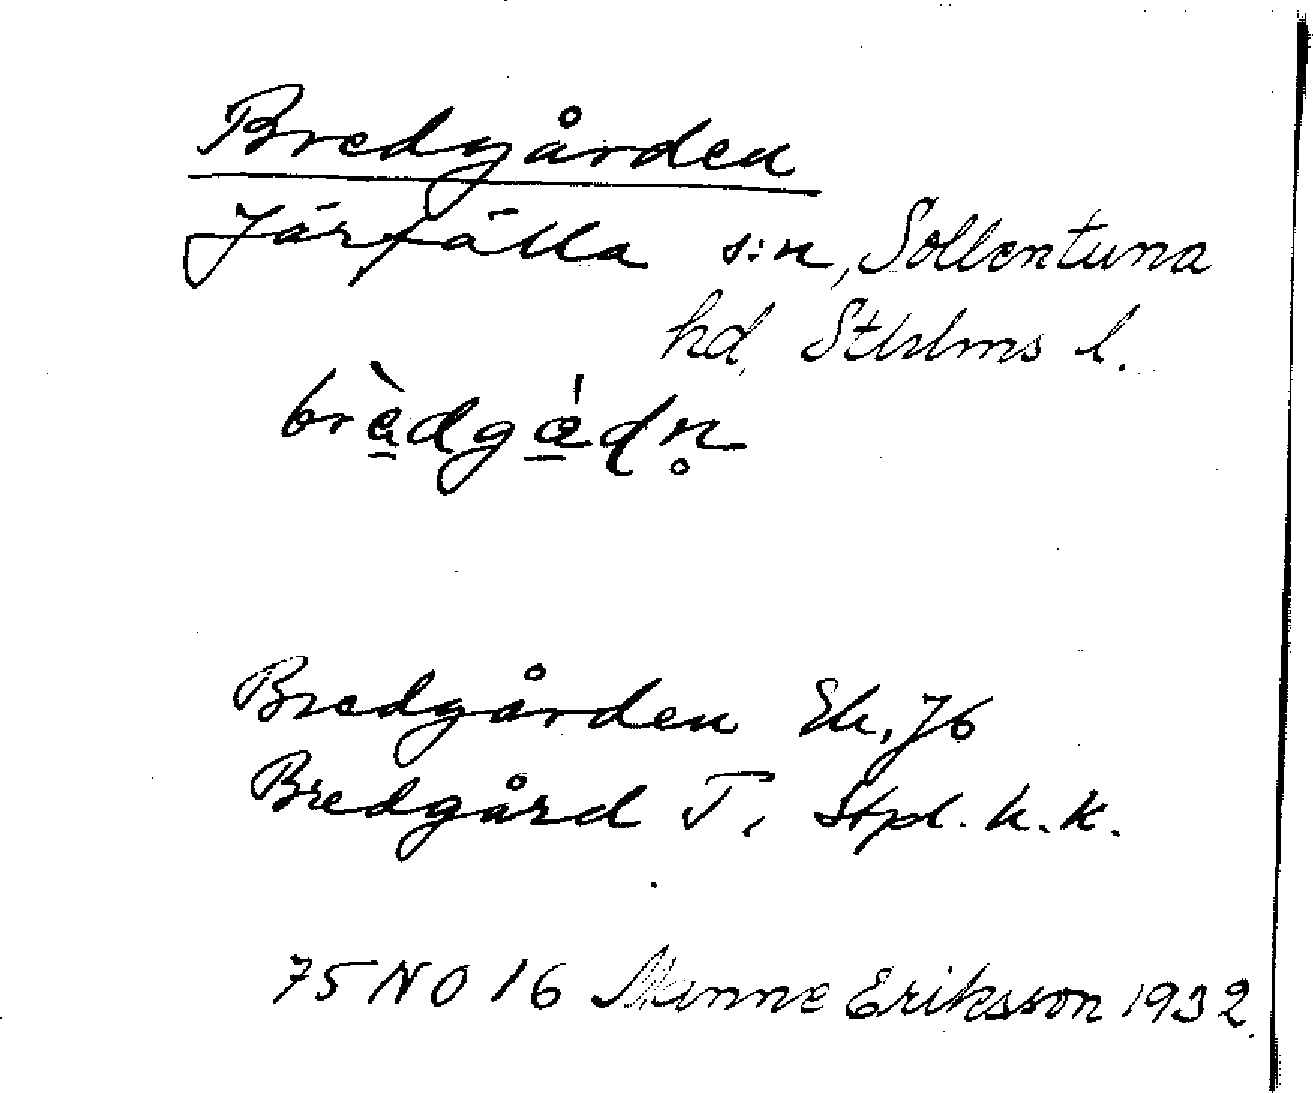 Bredgården
Järfälla s:n, Sollentuna
hd, Sthlms l.
Bredgården Ek, Jb
Bredgård T, Stpl. k.k.
75 NO 16 Manne Eriksson 1932.